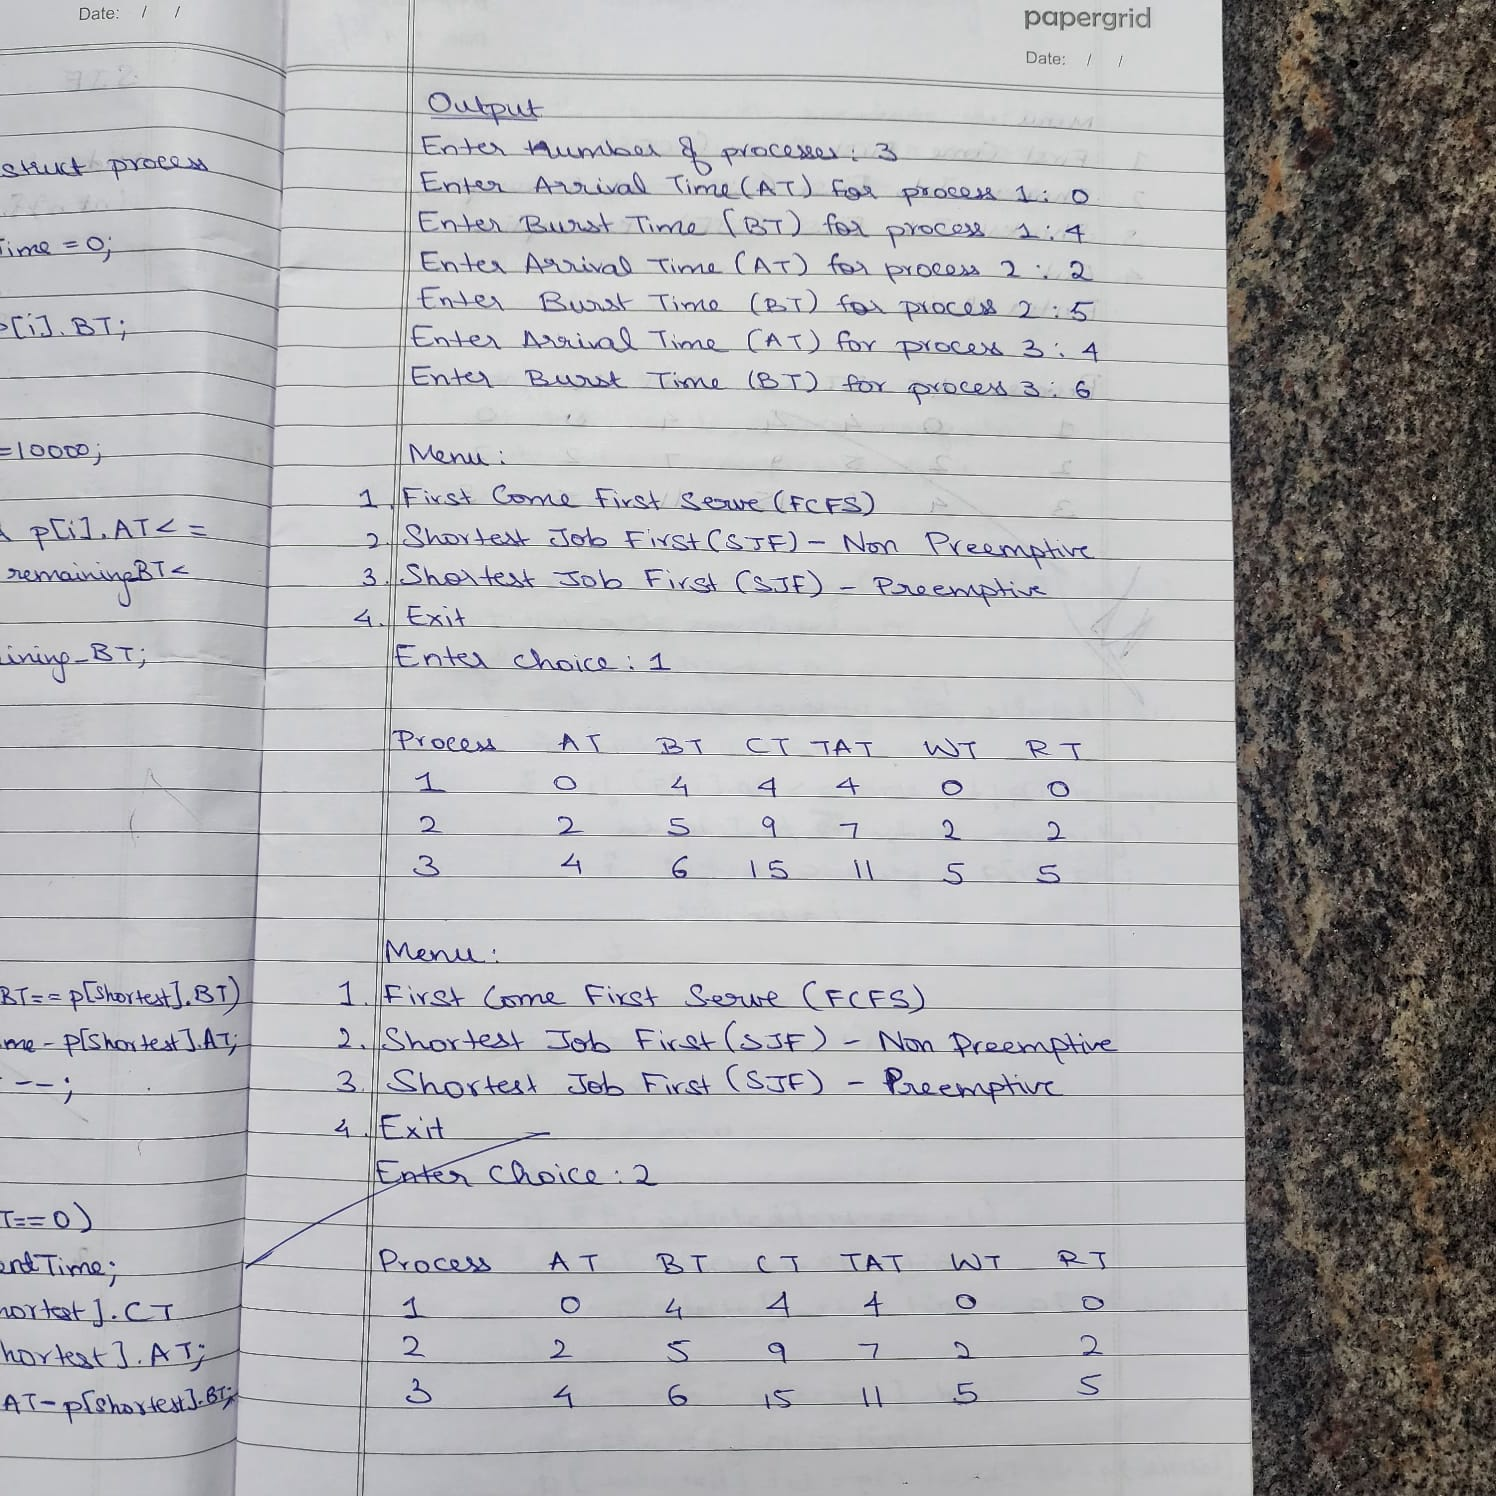 Date: / /
struct process
Time = 0;
p[i].BT;
=10000;
p[i].AT< =
remainingBT<
ining_BT;
BT== p[shortest].BT)
me - p[shortest].AT;
--;
T==0)
endTime;
hortest].CT
hortest].AT;
AT-p[shortest].BT;
papergrid
Date: / /
Output
Enter number of processes: 3
Enter Arrival Time (AT) for process 1: 0
Enter Burst Time (BT) for process 1: 4
Enter Arrival Time (AT) for process 2: 2
Enter Burst Time (BT) for process 2: 5
Enter Arrival Time (AT) for process 3: 4
Enter Burst Time (BT) for process 3: 6
Menu:
1. First Come First Serve (FCFS)
2. Shortest Job First (SJF) - Non Preemptive
3. Shortest Job First (SJF) - Preemptive
4. Exit
Enter choice: 1
Process AT BT CT TAT WT RT
1 0 4 4 4 0 0
2 2 5 9 7 2 2
3 4 6 15 11 5 5
Menu:
1. First Come First Serve (FCFS)
2. Shortest Job First (SJF) - Non Preemptive
3. Shortest Job First (SJF) - Preemptive
4. Exit
Enter Choice: 2
Process AT BT CT TAT WT RT
1 0 4 4 4 0 0
2 2 5 9 7 2 2
3 4 6 15 11 5 5